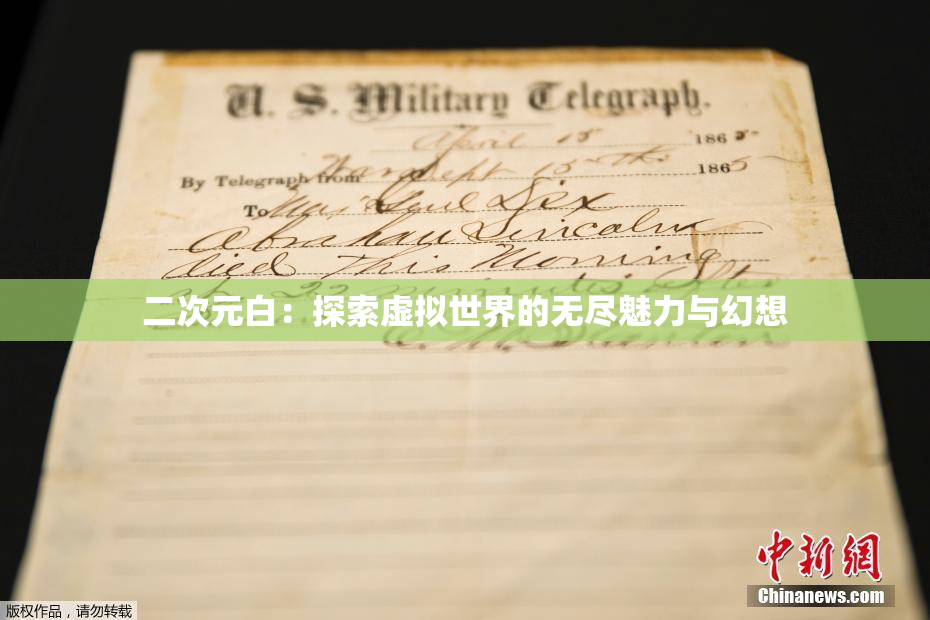 U. S. Military Telegraph.
April 15 1865
By Telegraph from War Dept 15th 1865
To Maj Genl Dix
Abraham Lincoln
died This Morning
at 22 minutes after
二次元白：探索虚拟世界的无尽魅力与幻想
中新网
Chinanews.com
版权作品，请勿转载